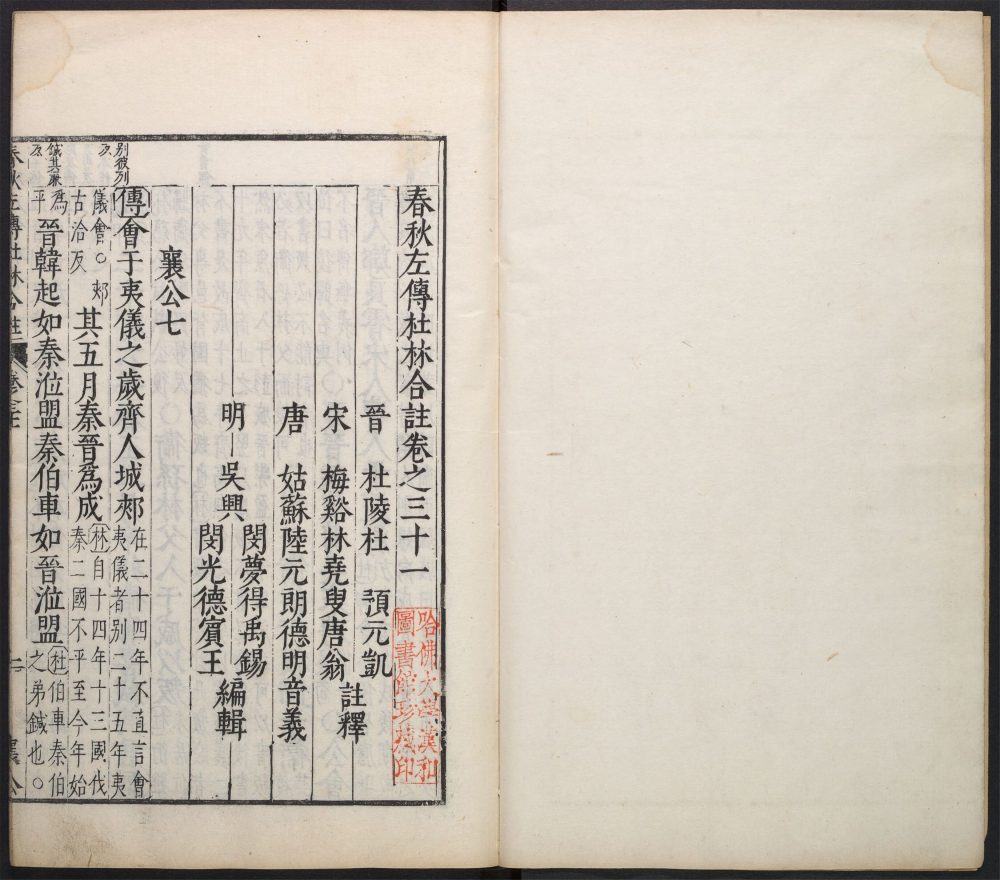 春秋左傳杜林合註卷之三十一
晉　杜陵杜　預元凱
宋　梅谿林堯叟唐翁
註釋
唐　姑蘇陸元朗德明音義
明　吳興
閔夢得禹錫
閔光德賓王
編輯
哈佛大學漢和
圖書館珍藏印
襄公七
別彼列
反
傳會于夷儀之歲齊人城郟
在二十四年不直言會
夷儀者別二十五年夷
儀會○郟
古洽反
其五月秦晉爲成
林自十四年十三國伐
秦二國不平至今年始
鍼其廉
反
爲
平
晉韓起如秦涖盟秦伯車如晉涖盟
杜伯車秦伯
之弟鍼也○
春秋左傳杜林合註
襄公